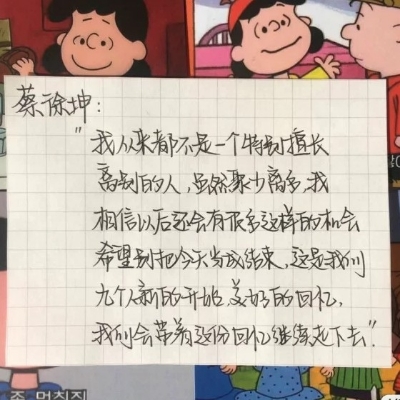 蔡徐坤：
"我从来都不是一个特别擅长
离别的人，虽然聚少离多，我
相信以后还会有很多这样的机会
希望别把今天当成结束，这是我们
九个人新的开始，美好的回忆，
我们会带着这份回忆继续走下去"
좀 멍청진